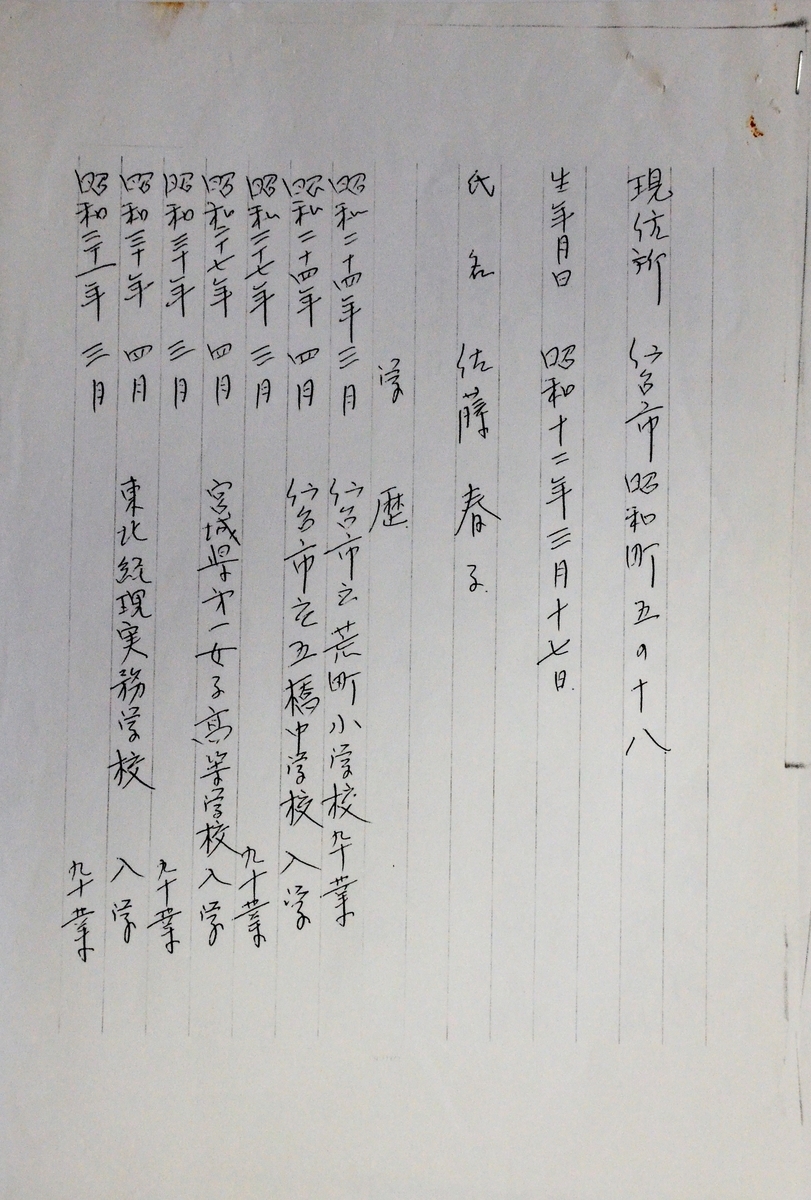 現住所 仙台市昭和町五の十八
生年月日 昭和十二年三月十七日
氏名 佐藤春子
学歴
昭和二十四年三月 仙台市立荒町小学校卆業
昭和二十四年四月 仙台市立五橋中学校入学
昭和二十七年三月 卆業
昭和二十七年四月 宮城県第一女子高等学校入学
昭和三十年三月 卆業
昭和三十年四月 東北経理実務学校入学
昭和三十一年三月 卆業